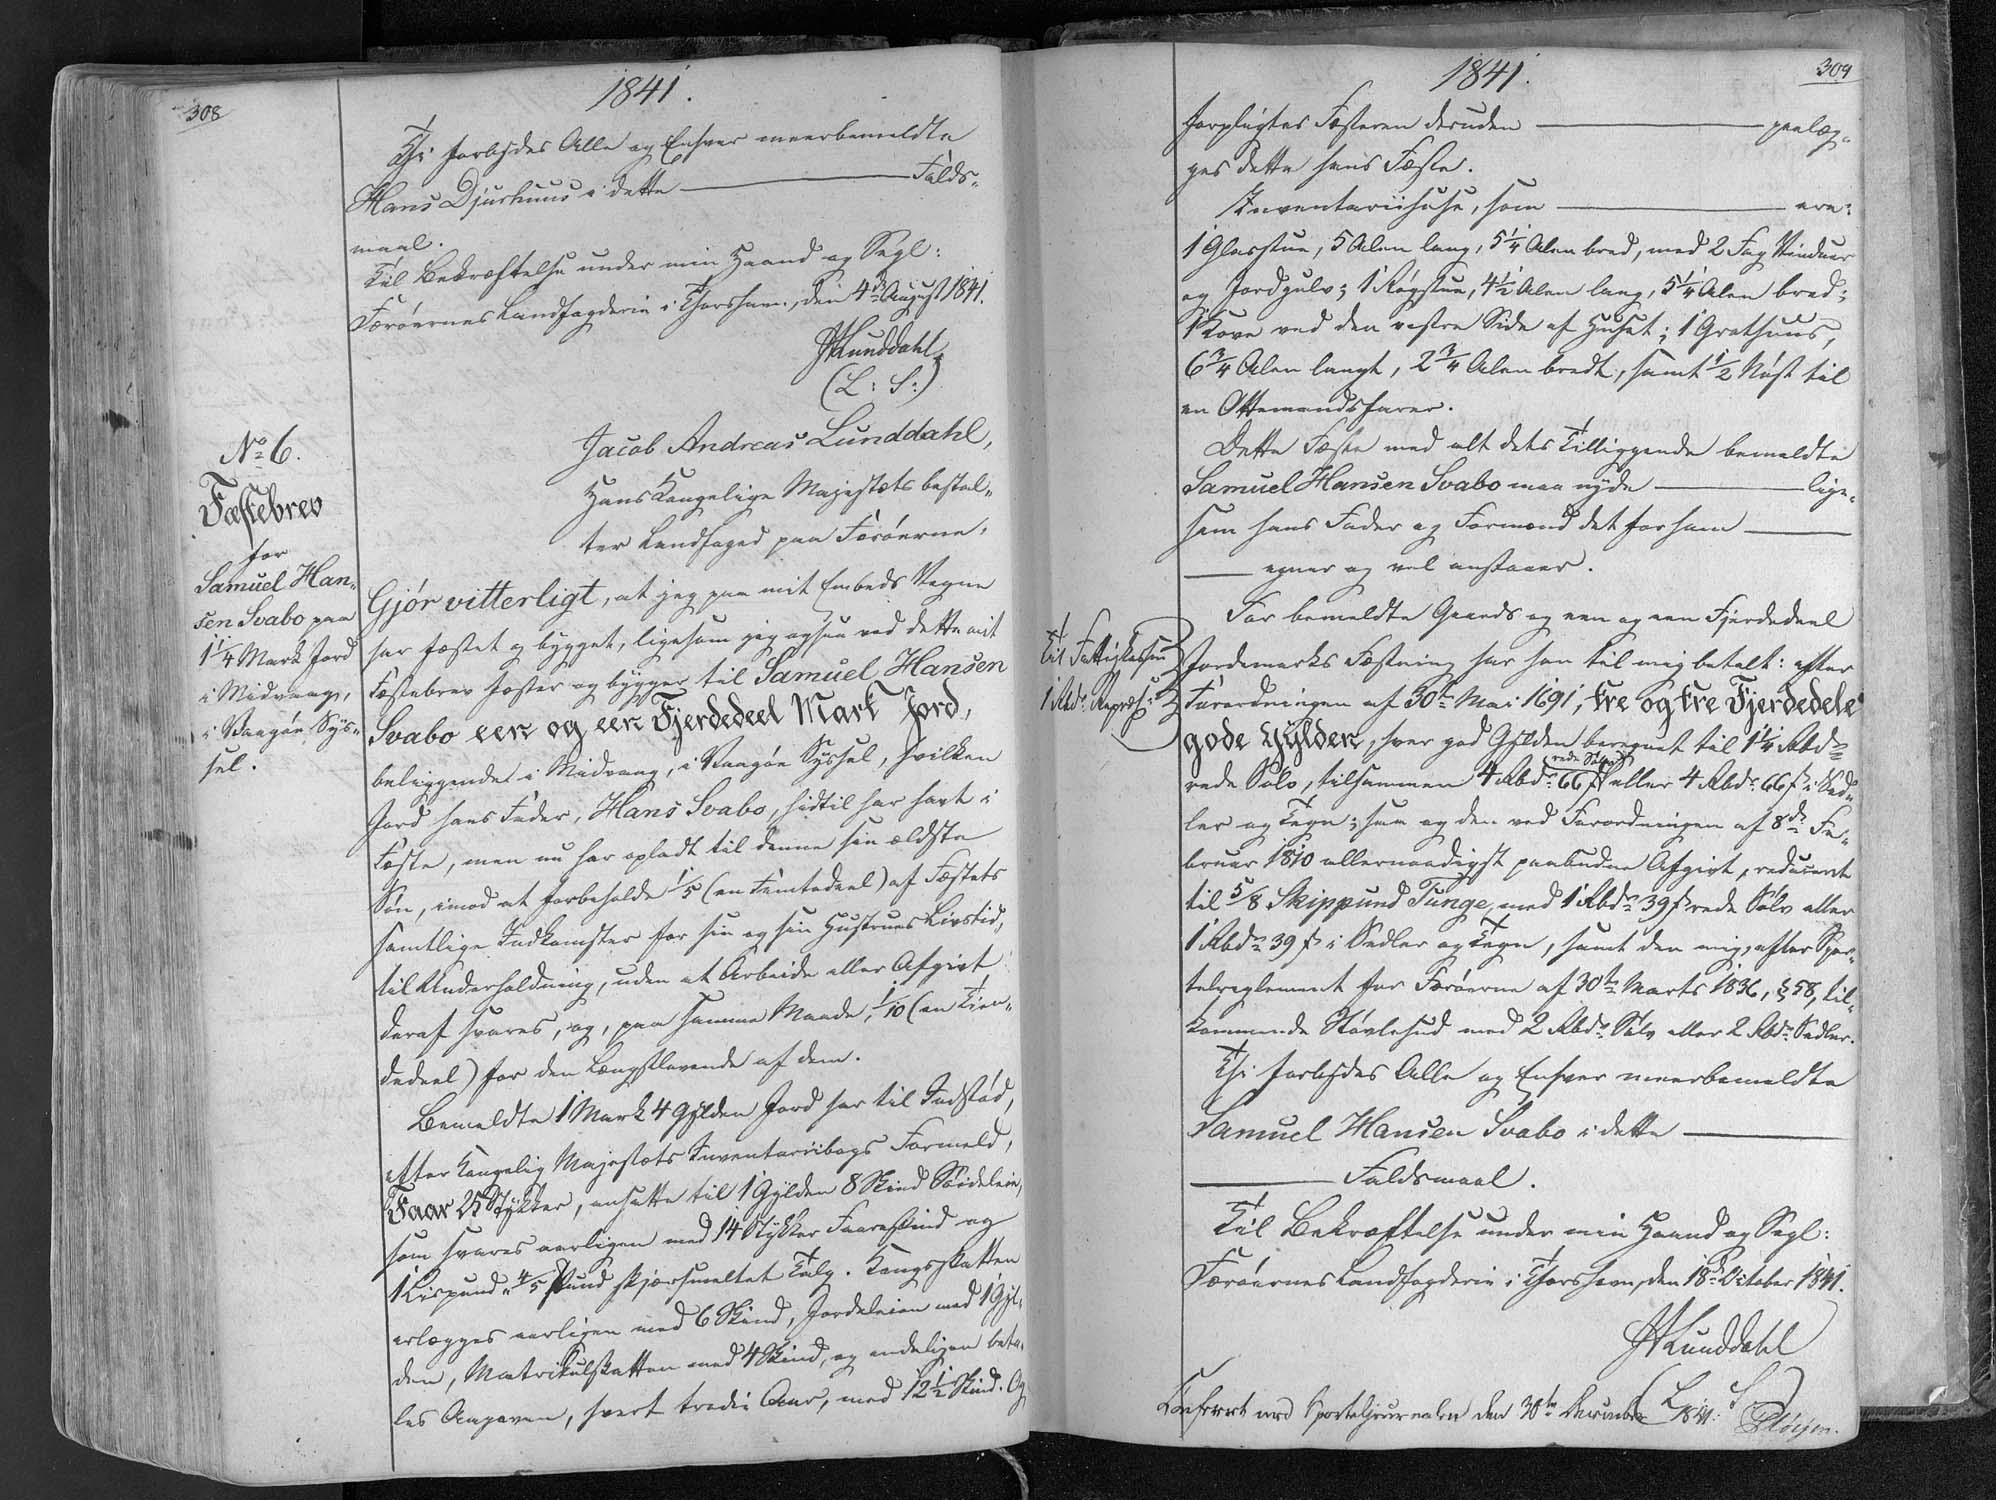 308
1841.
Thi forbydes Alle og Enhver meerbemeldte
Hans Djurhuus i dette ——— Falds-
maal.
Til Bekræftelse under min Haand og Segl:
Færöernes Landfogderie i Thorshavn, den 4de August 1841.
JALunddahl
(L: S:)
No 6.
Fæstebrev
for
Samuel Han-
sen Svabo paa
1 1/4 Mark Jord
i Midvaag,
i Vaagöe Sys-
sel.
Jacob Andreas Lunddahl,
Hans Kongelige Majestæts bestal-
ter Landfoged paa Færöerne,
Gjör vitterligt, at jeg paa mit Embeds Vegne
har fæstet og bygget, ligesom jeg ogsaa ved dette mit
Fæstebrev fæster og bygger til Samuel Hansen
Svabo een og een Fjerdedeel Mark Jord,
beliggende i Midvaag, i Vaagöe Syssel, hvilken
Jord hans Fader, Hans Svabo, hidtil har havt i
Fæste, men nu har opladt til denne sin ældste
Sön, imod at forbeholde 1/5 (en Femtedeel) af Fæstets
samtlige Indkomster for sin og sin Hustrues Livstid,
til Underholdning, uden at Arbeide eller Afgivt
deraf svares, og, paa samme Maade, 1/10 (en Tien-
dedeel) for den Længstlevende af dem.
Bemeldte 1 Mark 4 Gylden Jord har til Indstöd,
efter Kongelig Majestæts Inventariibogs Formeld,
Faar 25 Stykker, ansatte til 1 Gylden 8 Skind Söideleie,
som svares aarligen med 14 Stykker Faareskind og
1 Lispund " 4/5 Pund skjærsmeltet Talg. Kongsskatten
erlægges aarligen med 6 Skind, Jordeleien med 1 Gyl-
den, Matrikulskatten med 4 Skind, og endeligen beta-
les Angaven, hvert tredie Aar, med 12 1/2 Skind. Og
1841.
309
forpligtes Fæsteren desuden ——— paalæg-
ges dette hans Fæste.
Inventariihuse, som ——— ere:
1 Glasstue, 5 Alen lang, 5 1/4 Alen bred, med 2 Fag Vinduer
og Jordgulv; 1 Rögstue, 4 1/2 Alen lang, 5 1/4 Alen bred;
1 Kove ved den vestre Side af Huset; 1 Grothuus,
6 3/4 Alen langt, 2 3/4 Alen bredt, samt 1/2 Nöst til
en Ottemandsfarer.
Dette Fæste med alt dets Tilliggende bemeldte
Samuel Hansen Svabo maa nyde ——— lige-
som hans Fader og Formænd det for ham ———
——— egner og vel anstaaer.
For bemeldte Gaards og een og een Fjerdedeel
Til Fattigkassen
1 Rbd. Repræs.
Jordemarks Fæstning har han til mig betalt: efter
Forordningen af 30te Mai 1691, tre og tre Fjerdedele
gode Gylden, hver god Gylden beregnet til 1 1/4 Rbdr
rede Sölv, tilsammen 4 Rbdr 66 s rede Sölv eller 4 Rbdr 66 s i Sed-
ler og Tegn; saa og den ved Forordningen af 8de Fe-
bruar 1810 allernaadigst paabudne Afgivt, reduceret
til 5/8 Skippund Tunge, med 1 Rbdr 39 s rede Sölv eller
1 Rbdr 39 s i Sedler og Tegn, samt den mig, efter Spor-
telreglement for Færöerne af 30te Marts 1836, § 58, til-
kommende Stövlehud med 2 Rbdr Sölv eller 2 Rbdr Sedler.
Thi forbydes Alle og Enhver meerbemeldte
Samuel Hansen Svabo i dette ———
——— Faldsmaal.
Til Bekræftelse under min Haand og Segl:
Færöernes Landfogderie i Thorshavn, den 18de October 1841.
JALunddahl
(L. S.)
Confereret med Sporteljournalen den 30te December 1841. Plöyen.